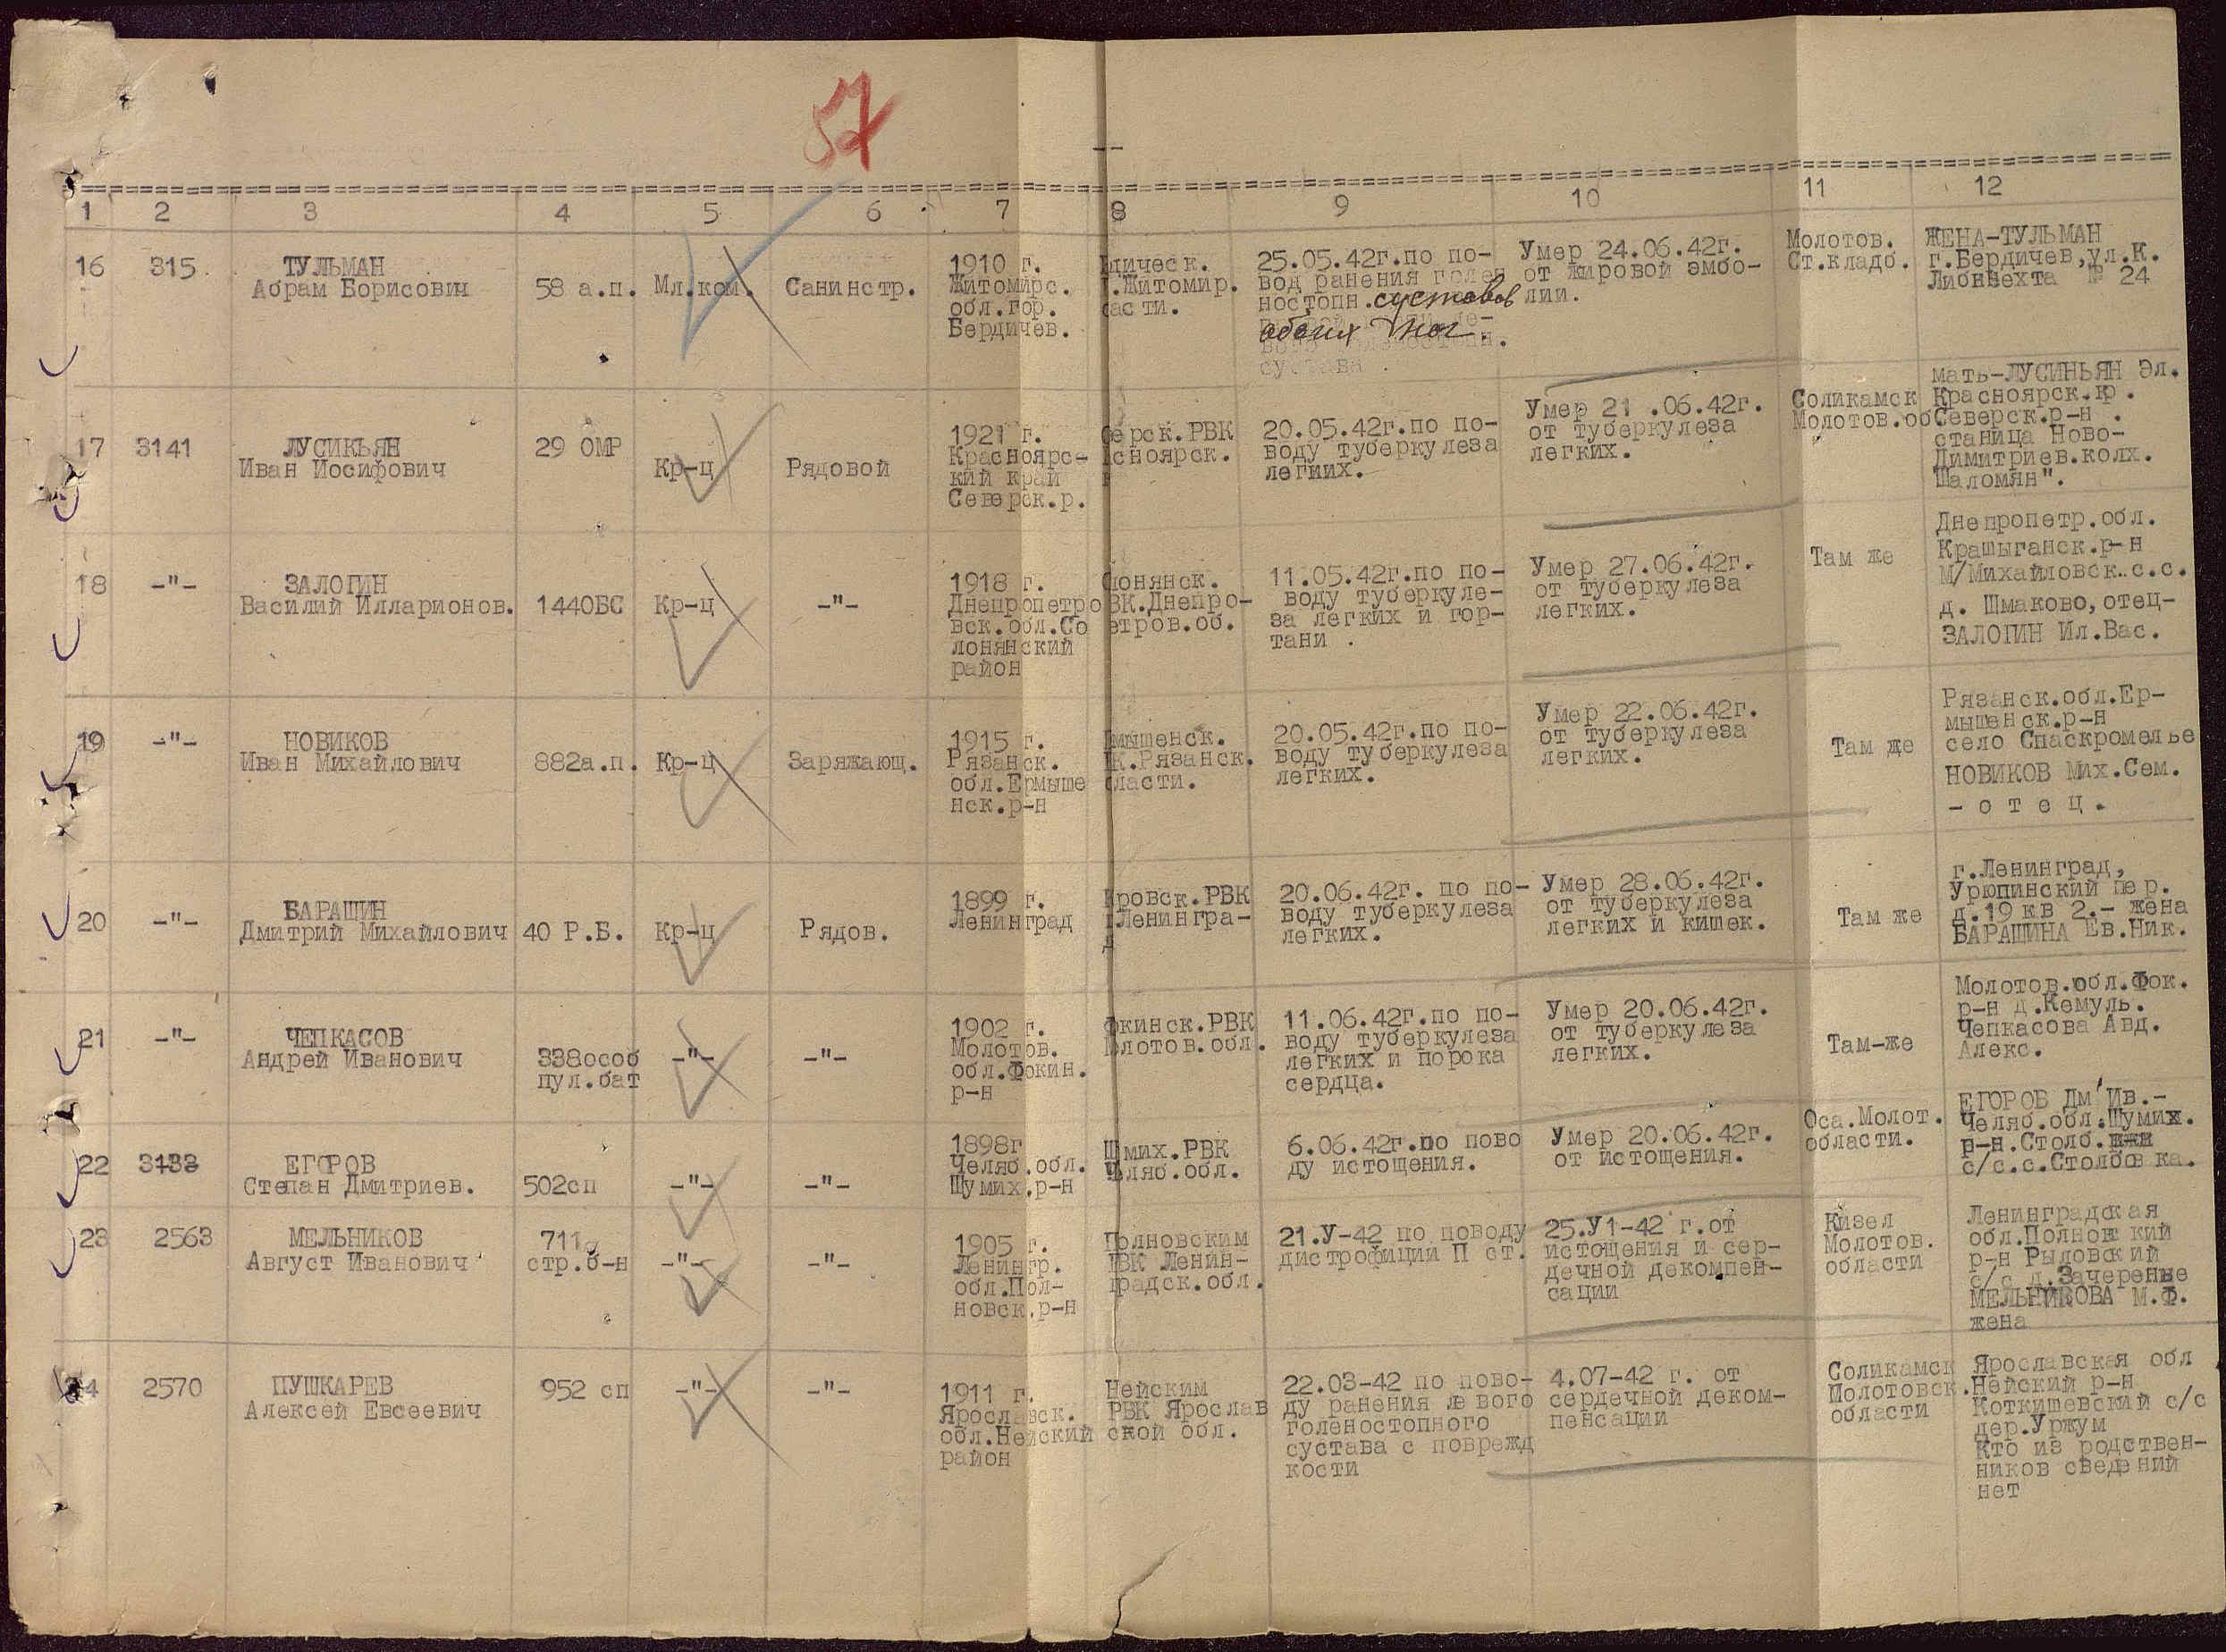 57
--
1 2 3 4 5 6 7 8 9 10 11 12
16 315. ТУЛЬМАН
Абрам Борисович
58 а.п.
Мл.ком.
Санинстр.
1910 г.
Житомирс.
обл.гор.
Бердичев.
дическ.
.Житомир.
асти.
25.05.42г.по по-
вод ранения голен
ностопн.суставов
обеих ног.
сустава .
Умер 24.06.42г.
от жировой эмбо-
лии.
Молотов.
Ст.кладб.
ЖЕНА-ТУЛЬМАН
г.Бердичев,ул.К.
Либнехта № 24
17 3141 ЛУСИКЬЯН
Иван Иосифович
29 ОМР
Кр-ц
Рядовой
1921 г.
Красноярс-
кий край
Северск.р.
ерск.РВК
сноярск.
20.05.42г.по по-
воду туберкулеза
легких.
Умер 21 .06.42г.
от туберкулеза
легких.
Соликамск
Молотов.об
мать-ЛУСИНЬЯН Эл.
Красноярск.кр.
Северск.р-н .
станица Ново-
Димитриев.колх.
Шаломян".
18 -"- ЗАЛОГИН
Василий Илларионов.
1440БС
Кр-ц
-"-
1918 г.
Днепропетро
вск.обл.Со
лонянский
район
лонянск.
ВК.Днепро-
етров.об.
11.05.42г.по по-
воду туберкуле-
за легких и гор-
тани .
Умер 27.06.42г.
от туберкулеза
легких.
Там же
Днепропетр.обл.
Крашыганск.р-н
М/Михайловск..с.с.
д. Шмаково,отец-
ЗАЛОГИН Ил.Вас.
19 -"- НОВИКОВ
Иван Михайлович
882а.п.
Кр-ц
Заряжающ.
1915 г.
Рязанск.
обл.Ермыше
нск.р-н
мышенск.
К.Рязанск.
ласти.
20.05.42г.по по-
воду туберкулеза
легких.
Умер 22.06.42г.
от туберкулеза
легких.
Там же
Рязанск.обл.Ер-
мышенск.р-н
село Спаскромелье
НОВИКОВ Мих.Сем.
- о т е ц .
20 -"- БАРАШИН
Дмитрий Михайлович
40 Р.Б.
Кр-ц
Рядов.
1899 г.
Ленинград
ировск.РВК
г.Ленингра-
д
20.06.42г. по по-
воду туберкулеза
легких.
Умер 28.06.42г.
от туберкулеза
легких и кишек.
Там же
г.Ленинград,
Урюпинский пер.
д.19 кв 2.- жена
БАРАШИНА Ев.Ник.
21 -"- ЧЕПКАСОВ
Андрей Иванович
338особ
пул.бат
-"-
-"-
1902 г.
Молотов.
обл.Фокин.
р-н
Фкинск.РВК
Молотов.обл.
11.06.42г.по по-
воду туберкулеза
легких и порока
сердца.
Умер 20.06.42г.
от туберкулеза
легких.
Там-же
Молотов.обл.Фок.
р-н д.Кемуль.
Чепкасова Авд.
Алекс.
22 3133 ЕГОРОВ
Степан Дмитриев.
502сп
-"-
-"-
1898г
Челяб.обл.
Шумих.р-н
Шмих.РВК
Чляб.обл.
6.06.42г.по пово
ду истощения.
Умер 20.06.42г.
от истощения.
Оса.Молот.
области.
ЕГОРОВ Дм Ив.-
Челяб.обл.Шумих.
р-н.Столб.
с/с.с.Столбовка.
23 2563 МЕЛЬНИКОВ
Август Иванович
711
стр.б-н
-"-
-"-
1905 г.
Ленингр.
обл.Пол-
новск.р-н
Полновским
РВК Ленин-
градск.обл.
21.У-42 по поводу
дистрофиции П ст.
25.У1-42 г.от
истощения и сер-
дечной декомпен-
сации
Кизел
Молотов.
области
Ленинградская
обл.Полновский
р-н Рыдовский
с/с д.Зачеренье
МЕЛЬНИКОВА М.Ф.
жена
24 2570 ПУШКАРЕВ
Алексей Евсеевич
952 сп
-"-
-"-
1911 г.
Ярославск.
обл.Нейский
район
Нейским
РВК Ярослав
ской обл.
22.03-42 по пово-
ду ранения левого
голеностопного
сустава с поврежд
кости
4.07-42 г. от
сердечной деком-
пенсации
Соликамск
Молотовск.
области
Ярославская обл
Нейский р-н
Коткишевский с/с
дер.Уржум
Кто из родствен-
ников сведений
нет